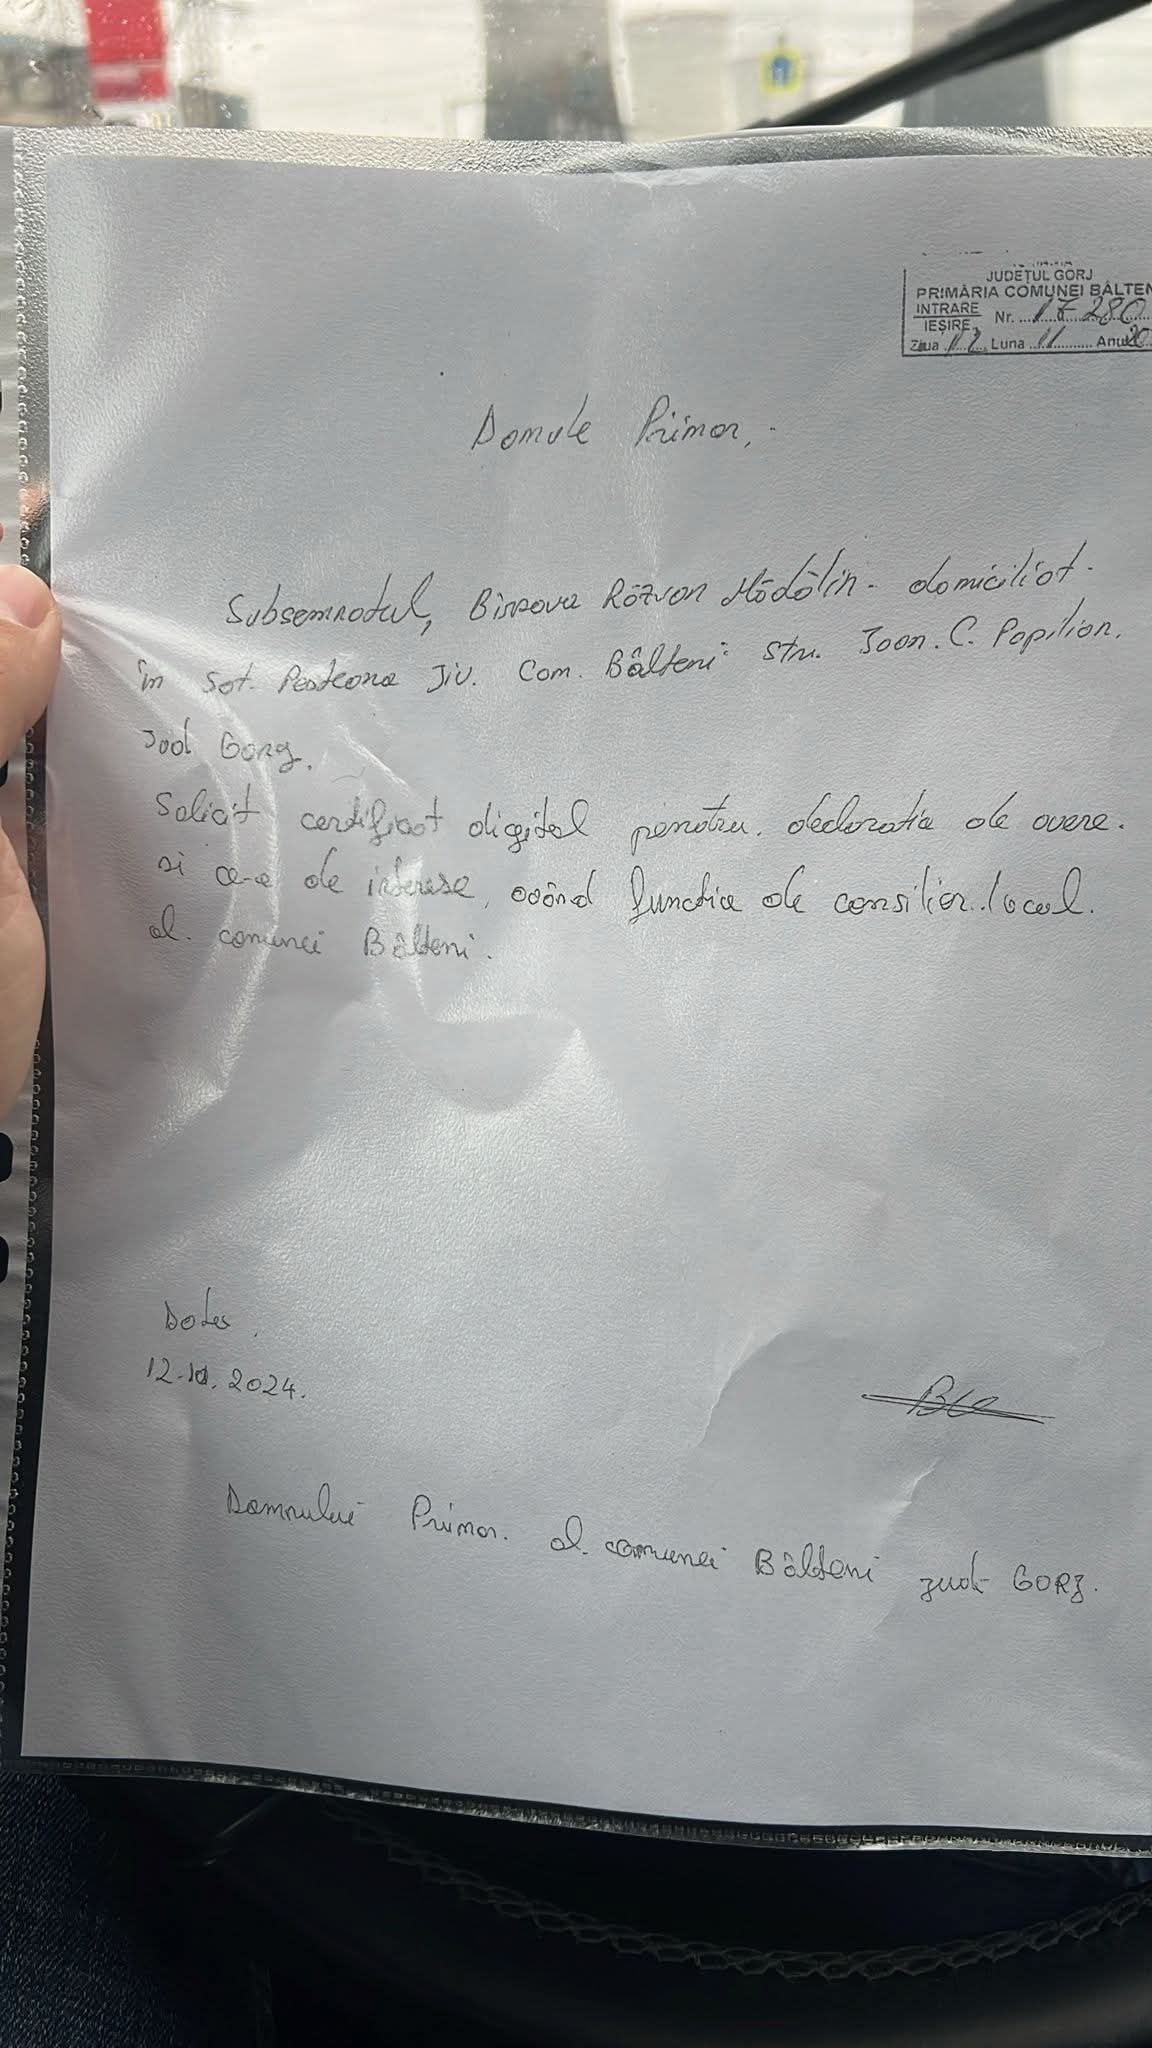 JUDEȚUL GORJ
PRIMĂRIA COMUNEI BÂLTEN
INTRARE
IEȘIRE Nr. 17280
Ziua 12 Luna 11 Anul 20
Domule Primar,
Subsemnatul, Răzvan Mădălin domiciliat
în Sat. Pesteana Jiu. Com. Bâlteni Str. Ioan. C. Popilian.
Jud Gorj.
Solicit certificat digital pentru declaratia de avere.
si ce-a de interese, având functia de consilier local.
al. comunei Bâlteni.
Data
12.11.2024.
Domnului Primar. al. comunei Bâlteni jud GORJ.